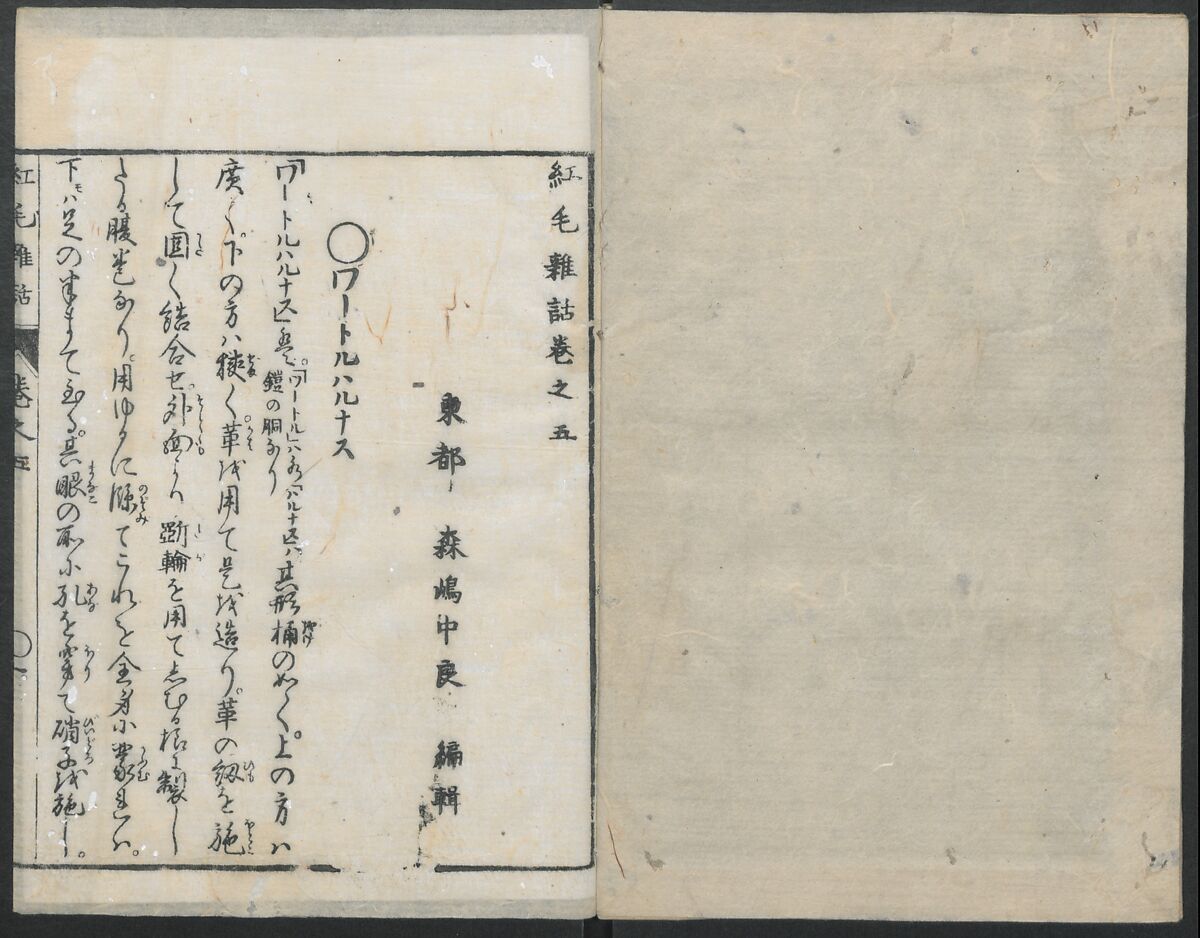 紅毛雜話巻之五
東都 森嶋中良 編輯
○ワートルハルナス
「ワートルハルナス」是「ワートル」ハ水「ハルナス」ハ鎧の胴なり其形桶の如く。上の方ハ
廣く。下の方ハ狭く。革を用て是を造り。革の紐を施
して固く結合せ。外面より 輪を用てしむる様に製し
たる腹巻なり。用ゆるに臨てこれを全身に蒙れバ。
下モハ足の まて至る。其眼の所に孔を穿て硝子を施し。
紅毛雜話 巻之五